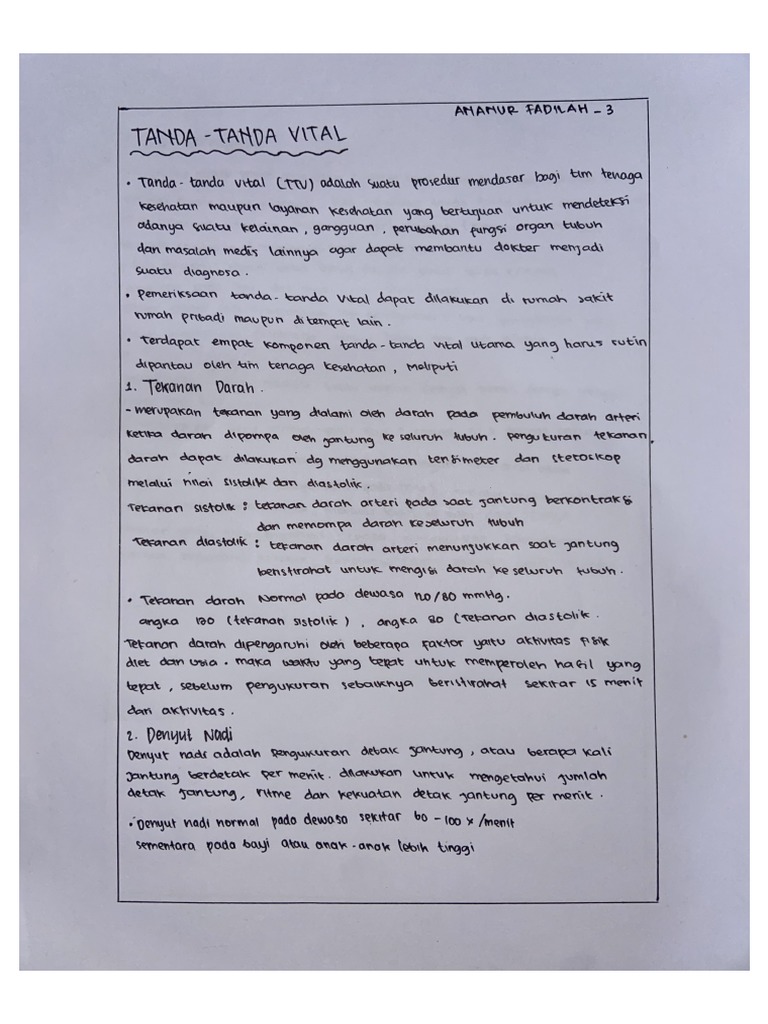 AMAMUR FADILAH - 3
TANDA - TANDA VITAL
• Tanda - tanda vital (TTV) adalah suatu prosedur mendasar bagi tim tenaga
kesehatan maupun layanan kesehatan yang bertujuan untuk mendeteksi
adanya suatu kelainan, gangguan, perubahan fungsi organ tubuh
dan masalah medis lainnya agar dapat membantu dokter menjadi
suatu diagnosa.
• Pemeriksaan tanda - tanda vital dapat dilakukan di rumah sakit
rumah pribadi maupun ditempat lain.
• Terdapat empat komponen tanda - tanda vital utama yang harus rutin
dipantau oleh tim tenaga kesehatan, meliputi
1. Tekanan Darah.
- merupakan tekanan yang dialami oleh darah pada pembuluh darah arteri
ketika darah dipompa oleh jantung ke seluruh tubuh. pengukuran tekanan
darah dapat dilakukan dg menggunakan tensimeter dan stetoskop
melalui nilai sistolik dan diastolik.
Tekanan sistolik : tekanan darah arteri pada saat jantung berkontraksi
dan memompa darah keseluruh tubuh
Tekanan diastolik : tekanan darah arteri menunjukkan saat jantung
beristirahat untuk mengisi darah ke seluruh tubuh.
• Tekanan darah Normal pada dewasa 120/80 mmHg.
angka 120 (tekanan sistolik), angka 80 (Tekanan diastolik.
Tekanan darah dipengaruhi oleh beberapa faktor yaitu aktivitas fisik
diet dan usia. maka waktu yang tepat untuk memperoleh hasil yang
tepat, sebelum pengukuran sebaiknya beristirahat sekitar 15 menit
dari aktivitas.
2. Denyut Nadi
Denyut nadi adalah pengukuran detak jantung, atau berapa kali
jantung berdetak per menit. dilakukan untuk mengetahui jumlah
detak jantung, ritme dan kekuatan detak jantung per menit.
• Denyut nadi normal pada dewasa sekitar 60 - 100 x /menit
sementara pada bayi atau anak-anak lebih tinggi